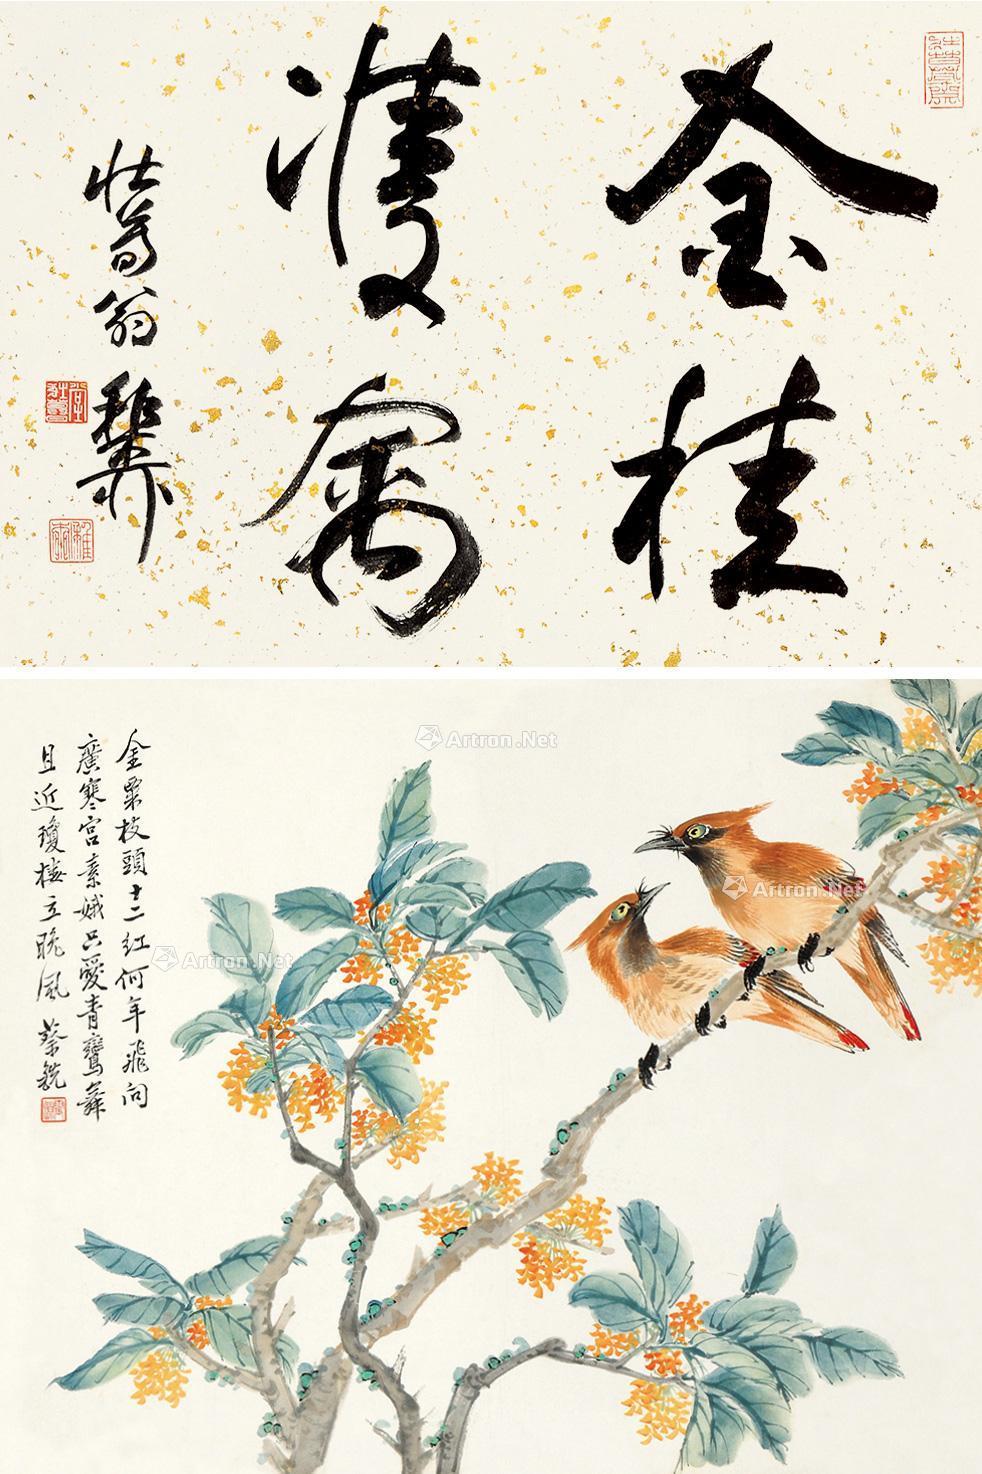 金桂
雙禽
壮暮翁稚
金粟枝頭十二紅何年飛向
廣寒宮素娥只愛青鸞舞
且近瓊樓立晚風 蔡銑
Artron.Net
Artron.Net
Artron.Net